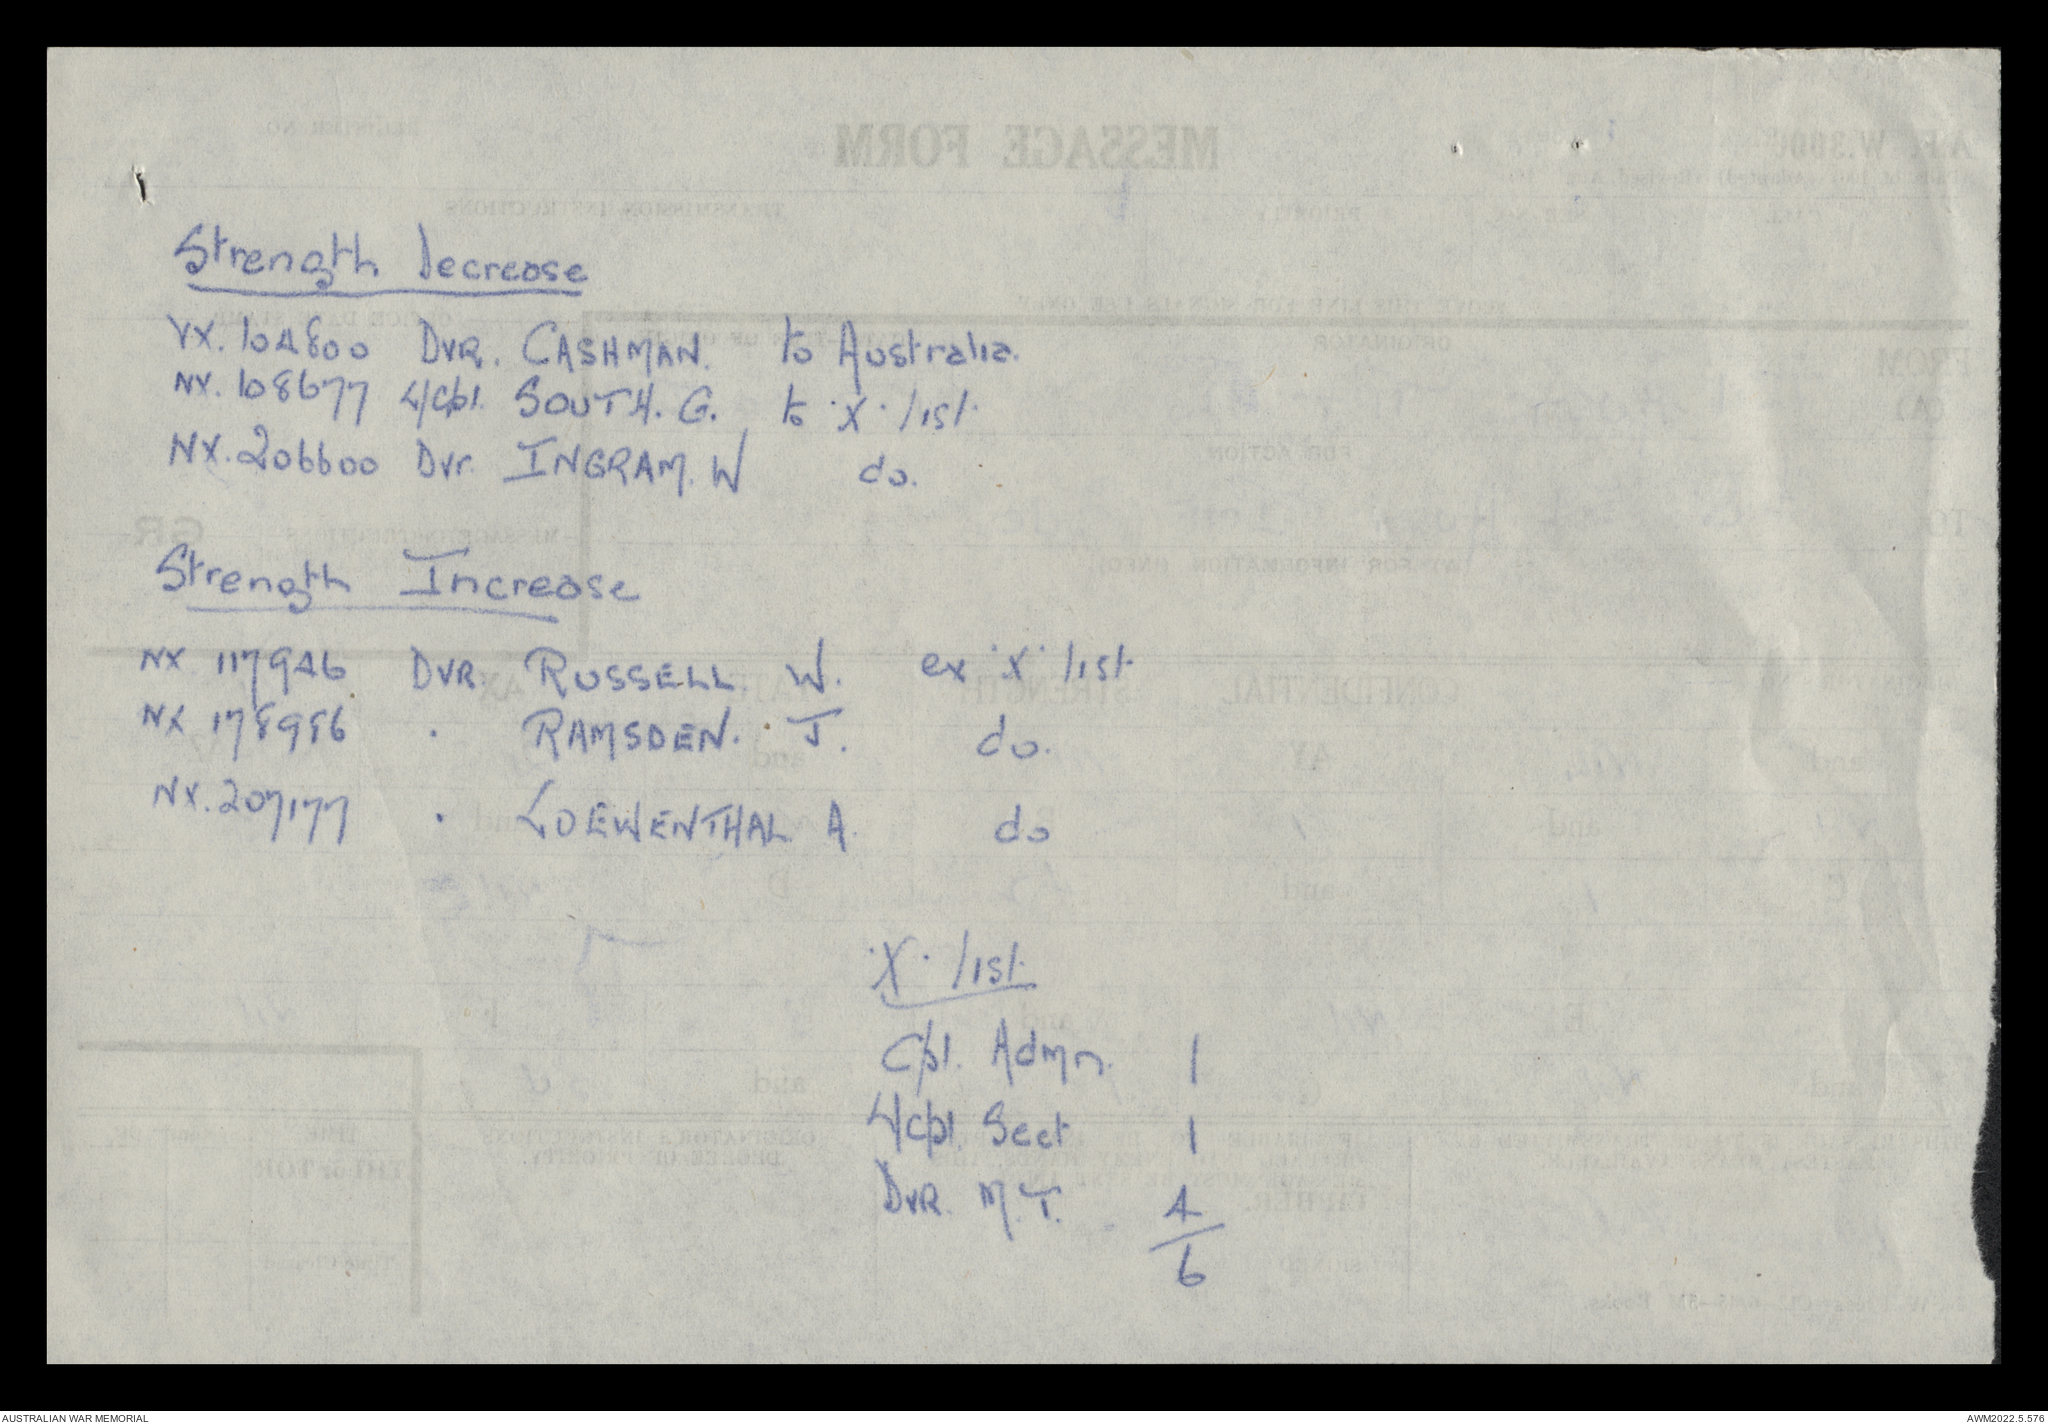 Strength Decrease
VX.104800 DVR. CASHMAN. to Australia.
NX.108677 L/Cpl. SOUTH. G. to "X" list.
NX.206600 Dvr. INGRAM. W do.
Strength Increase
NX 117946 DVR RUSSELL W. ex "X" list
NX 178986 " RAMSDEN. J. do.
NX.207177 " LOEWENTHAL A. do
"X" list.
Cpl. Admn. 1
L/Cpl Sect 1
DVR. M.T. 4
6
AUSTRALIAN WAR MEMORIAL
AWM2022.5.576